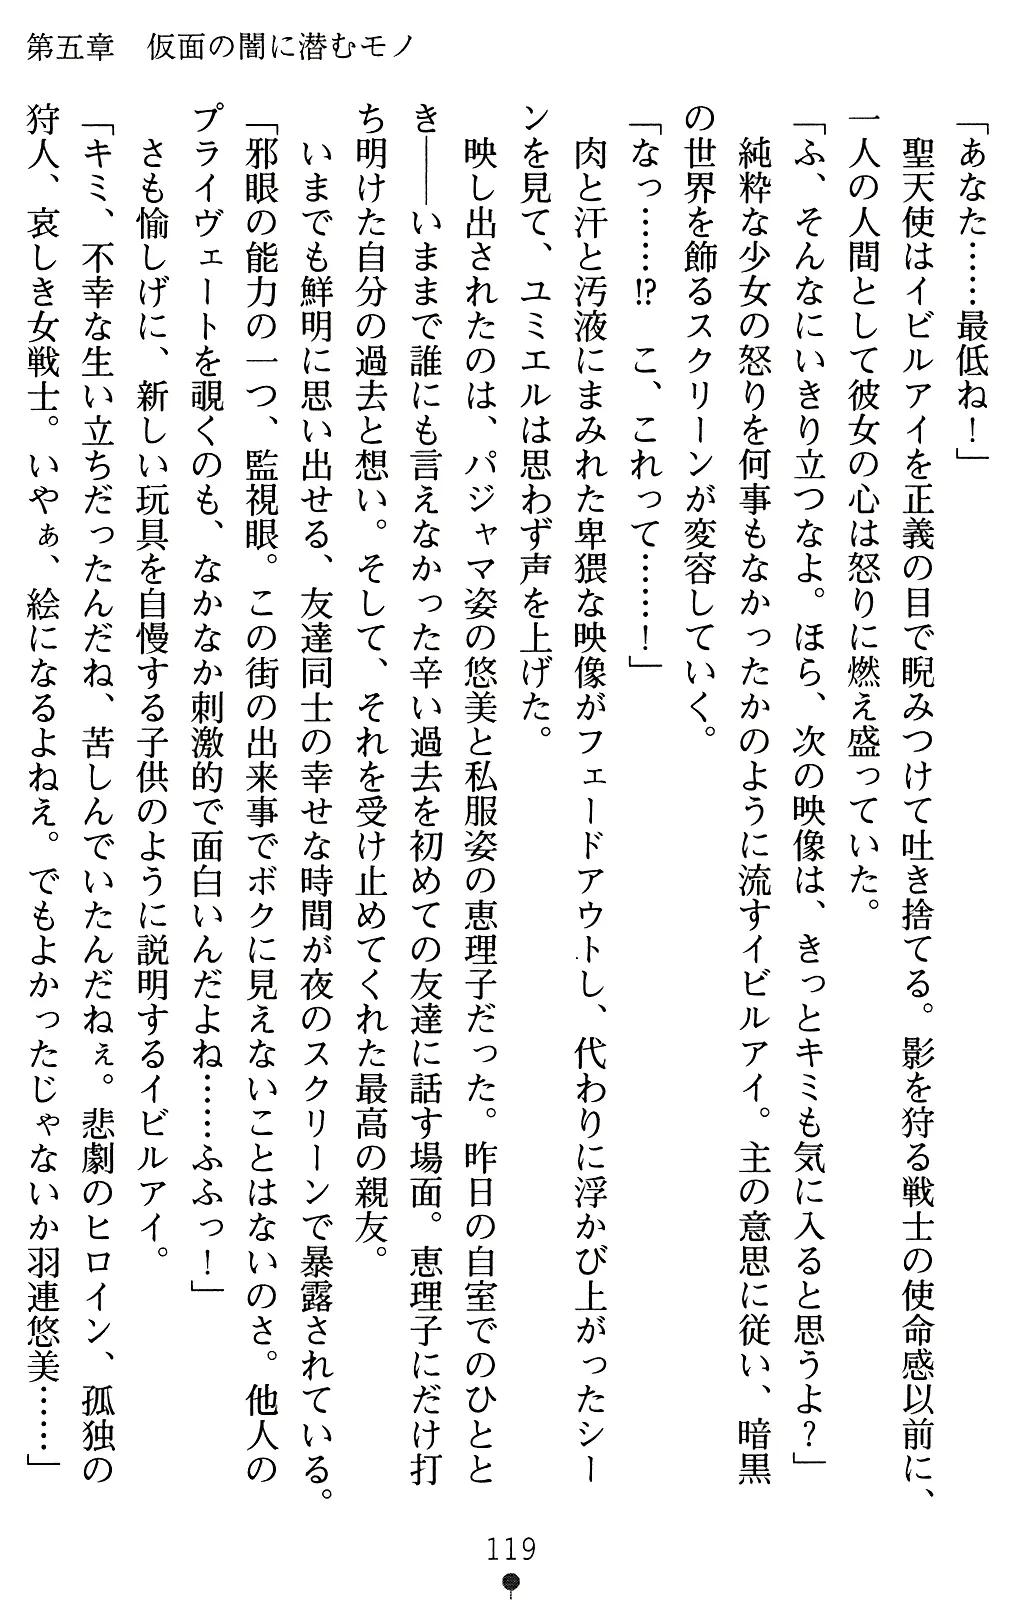 第五章　仮面の闇に潜むモノ
「あなた……最低ね！」
　聖天使はイビルアイを正義の目で睨みつけて吐き捨てる。影を狩る戦士の使命感以前に、
一人の人間として彼女の心は怒りに燃え盛っていた。
「ふ、そんなにいきり立つなよ。ほら、次の映像は、きっとキミも気に入ると思うよ？」
　純粋な少女の怒りを何事もなかったかのように流すイビルアイ。主の意思に従い、暗黒
の世界を飾るスクリーンが変容していく。
「なっ……!?　こ、これって……！」
　肉と汗と汚液にまみれた卑猥な映像がフェードアウトし、代わりに浮かび上がったシー
ンを見て、ユミエルは思わず声を上げた。
　映し出されたのは、パジャマ姿の悠美と私服姿の恵理子だった。昨日の自室でのひとと
き――いままで誰にも言えなかった辛い過去を初めての友達に話す場面。恵理子にだけ打
ち明けた自分の過去と想い。そして、それを受け止めてくれた最高の親友。
　いまでも鮮明に思い出せる、友達同士の幸せな時間が夜のスクリーンで暴露されている。
「邪眼の能力の一つ、監視眼。この街の出来事でボクに見えないことはないのさ。他人の
プライヴェートを覗くのも、なかなか刺激的で面白いんだよね……ふふっ！」
　さも愉しげに、新しい玩具を自慢する子供のように説明するイビルアイ。
「キミ、不幸な生い立ちだったんだね、苦しんでいたんだねぇ。悲劇のヒロイン、孤独の
狩人、哀しき女戦士。いやぁ、絵になるよねえ。でもよかったじゃないか羽連悠美……」
119